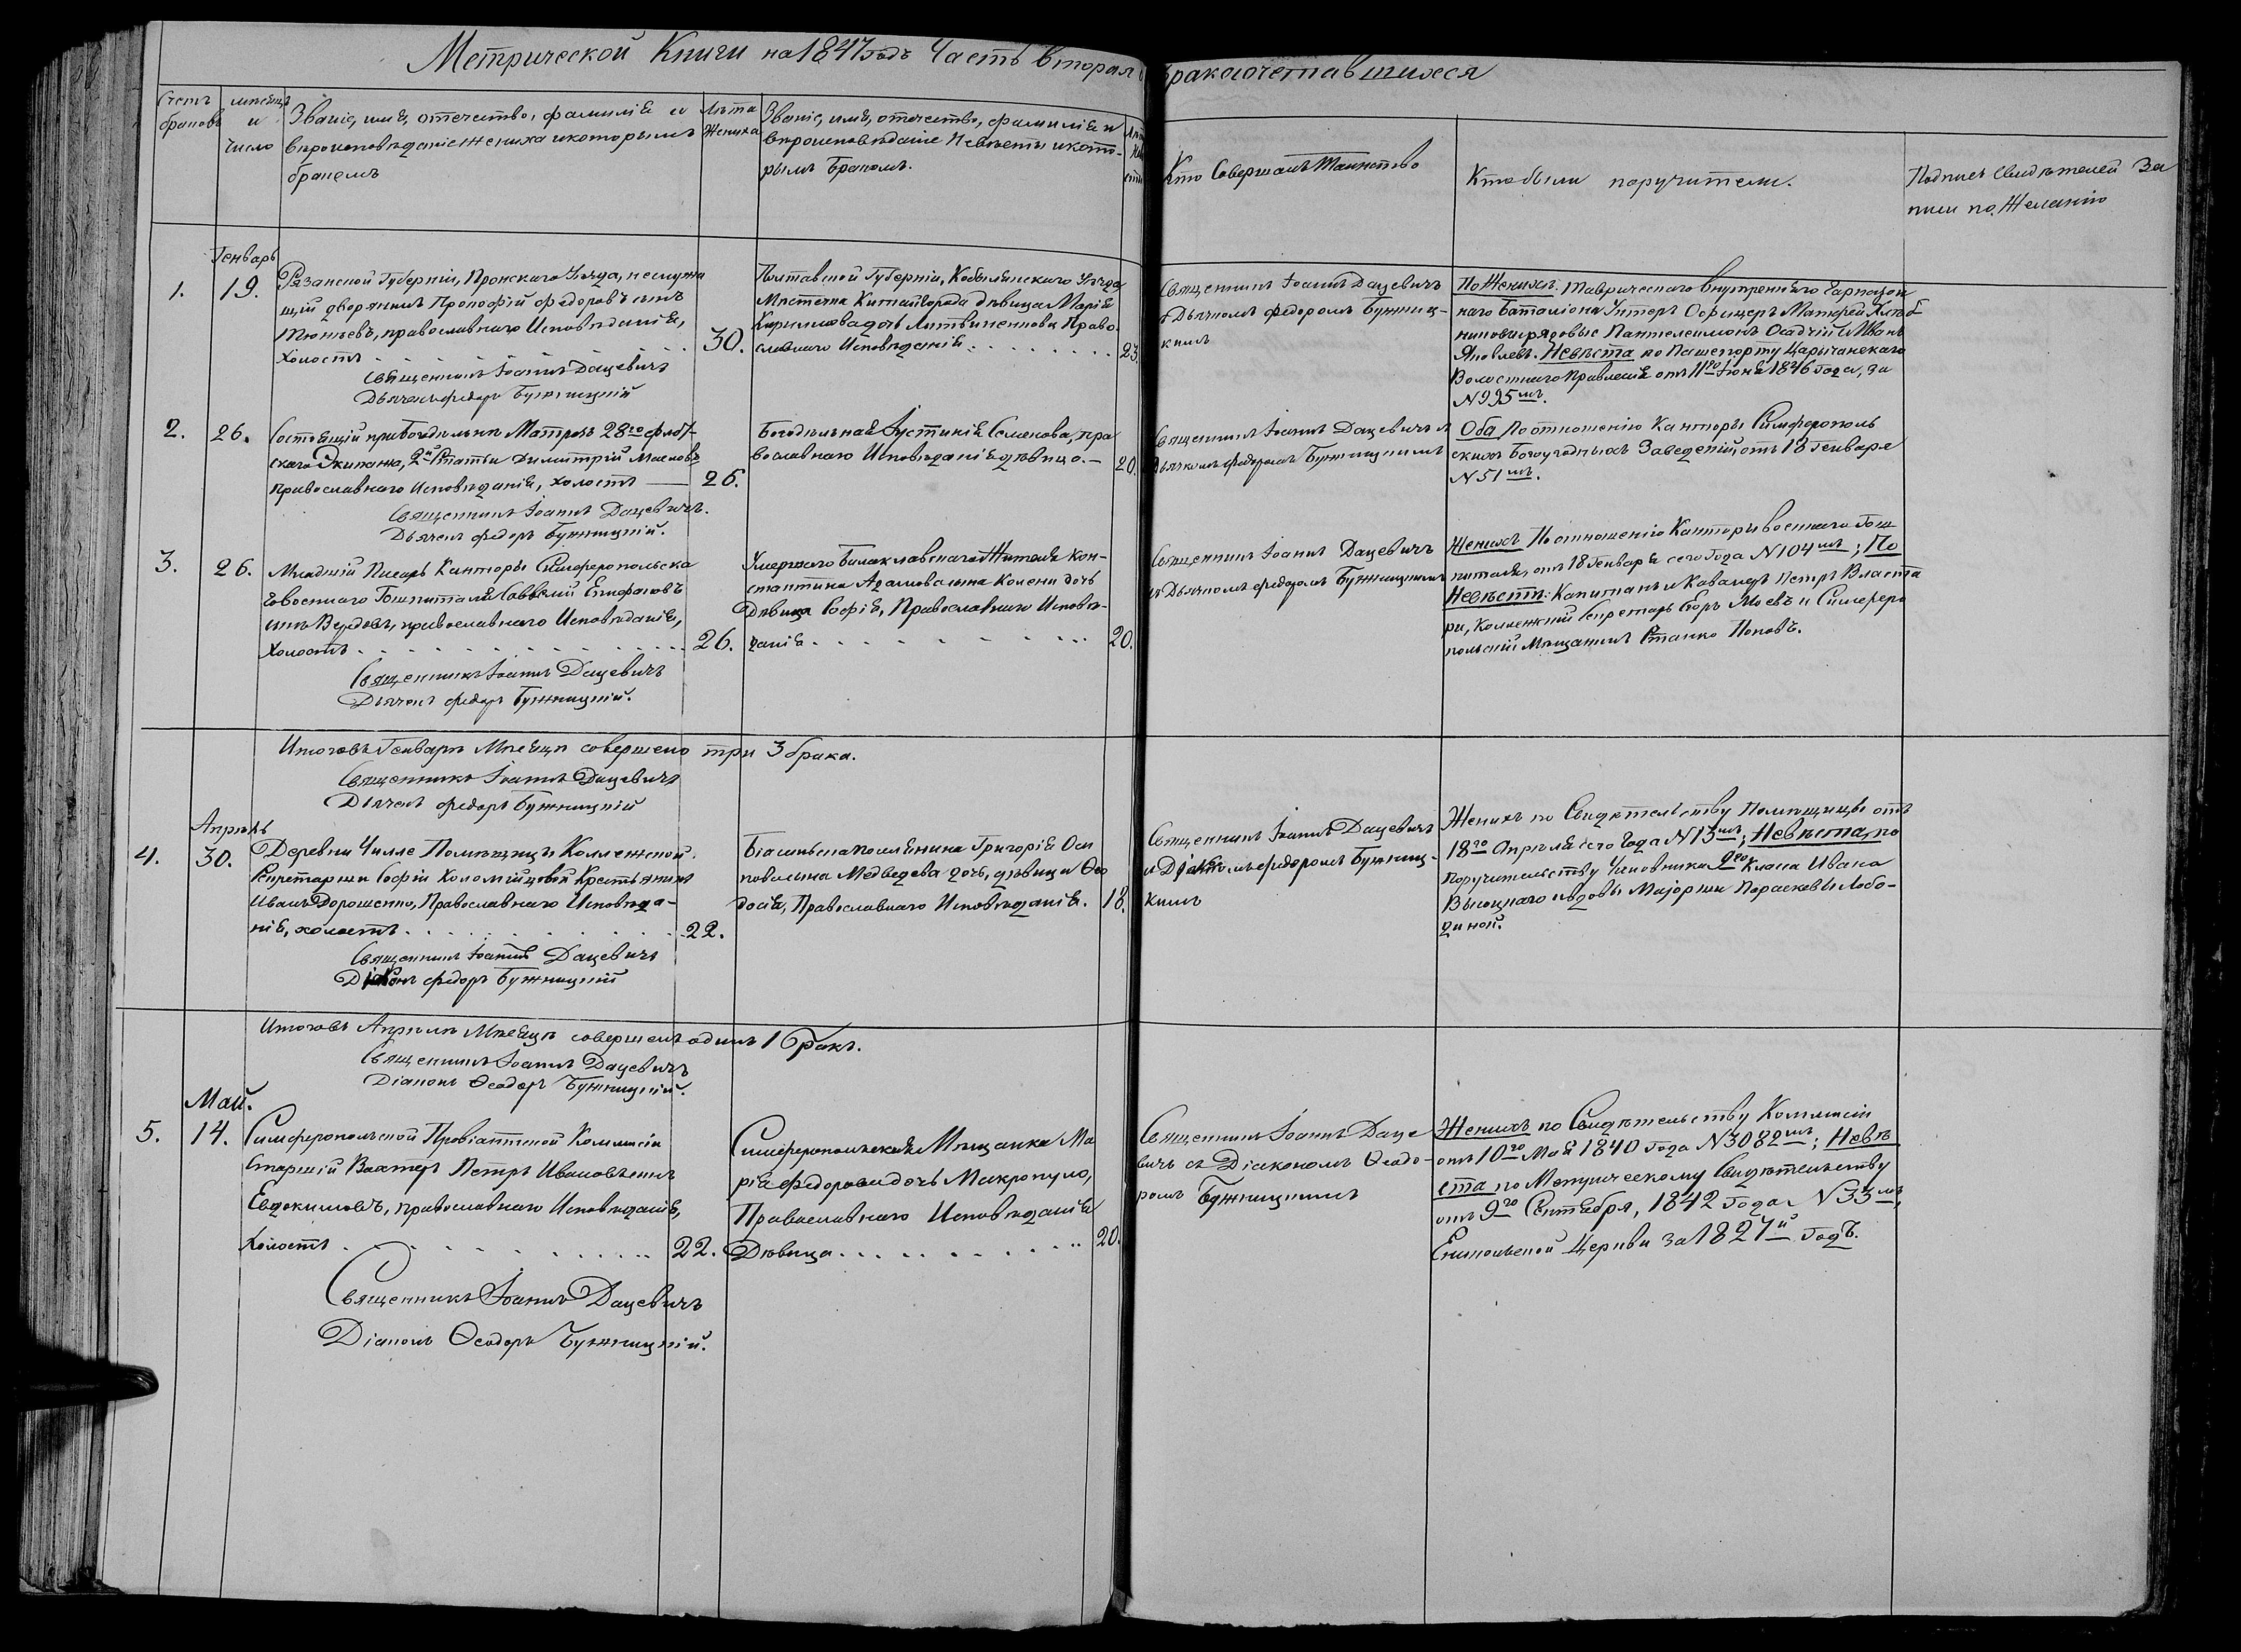 Метрической Книги на 1847 годъ Часть вторая о бракосочетавшихся
Счетъ
браковъ
мѣсяцъ
и
число
Званіе, имя, отечество, фамилія и
вѣроисповѣданіе жениха и которымъ
бракомъ
Лѣта
Жениха
Званіе, имя, отечество, фамилія и
вѣроисповѣданіе Невѣсты и кото-
рымъ бракомъ.
Кто Совершалъ Таинство
Кто были поручители.
Подпись Свидѣтелей За
писи по Желанію
Генварь
1.
19.
Рязанской Губерніи, Пронскаго Уѣзда, неслужа
щій дворянинъ Прокофій Федоровъ сынъ
Тютчевъ, православнаго Исповѣданія,
Холостъ
Священникъ Іоаннъ Дацевичъ
Дьячекъ федоръ Бужницкій
30.
Полтавской Губерніи, Кобылянскаго Уѣзда
Мѣстечка Китайгорода дѣвица Марія
Кирилова дочь Литвиненкова Право
славнаго Исповѣданія
23.
Священникъ Іоаннъ Дацевичъ
съ Дьячкомъ Федоромъ Бужниц-
кимъ
По Женихѣ: Таврическаго Внутренняго Гарнизон
наго Баталіона Унтеръ Офицеръ Матфей Хлѣб
никовъ и рядовые Пантелеимонъ Осадчій и Иванъ
Яковлевъ. Невѣста по Пашпорту Царычанскаго
Волостнаго Правленія отъ 11го Іюня 1846 Года, за
N 995мъ.
2.
26.
Состоящій при Богадѣльнѣ Матрозъ 28го флот-
скаго Экипажа, 2й Статьи Димитрій Масловъ
Православнаго Исповѣданія, холостъ
Священникъ Іоаннъ Дацевичъ.
Дьячекъ федоръ Бужницкій.
26.
Богодѣльная Іустинія Семенова, пра
вославнаго Исповѣданія дѣвица.
20.
Священникъ Іоаннъ Дацевичъ съ
Дьячкомъ Федоромъ Бужницкимъ
Оба По отношенію Канторы Симферополь
скихъ Богоугодныхъ Заведеній, отъ 18 Генваря
N 51мъ.
3.
26.
Младшій Писарь Канторы Симферопольска
го военнаго Гошпиталя Савелій Епифановъ
сынъ Вередовъ, православнаго Исповѣданія,
Холостъ
Священникъ Іоаннъ Дацевичъ
Дьячекъ федоръ Бужницкій.
26.
Умершаго Балаклавскаго Жителя Кон-
стантина Адамова сына Колени дочь
Дѣвица Софія, Православнаго Исповѣ-
данія
20.
Священникъ Іоаннъ Дацевичъ
съ Дьячкомъ Федоромъ Бужницкимъ
Женихъ По отношенію Канторы военнаго Гош
питаля, отъ 18 Генваря сего Года N 104мъ; По
Невѣстѣ: Капитанъ и Кавалеръ Петръ Власта
ри, Коллежскій Секретарь Егоръ Моевъ и Симферо
польскій Мѣщанинъ Станко Поповъ.
Итого въ Генварѣ Мѣсяцѣ совершено три 3 брака.
Священникъ Іоаннъ Дацевичъ
Дьячекъ федоръ Бужницкій
Апрѣль
4.
30.
Деревни Чилле Помѣщицы Коллежской
Секретарши Софіи Коломійцовой Крестьянинъ
Иванъ Дорошенко, Православнаго Исповѣда-
нія, холостъ
Священникъ Іоаннъ Дацевичъ
Діаконъ федоръ Бужницкій
22.
поселянина Григорія Оси
пова сына Медведева дочь, дѣвица Ѳео
досія, Православнаго Исповѣданія.
18.
Священникъ Іоаннъ Дацевичъ
и Діакономъ Федоромъ Бужниц-
кимъ
Женихъ по Свидѣтельству Помѣщицы отъ
18го Апрѣля сего Года N 13мъ; Невѣста, по
поручительству Чиновника 9го Класа Ивана
Высоцкаго и вдовы Маіорши Парасковьи Лобо-
диной.
Итого въ Апрѣлѣ Мѣсяцѣ совершенъ одинъ 1 Бракъ.
Священникъ Іоаннъ Дацевичъ
Діаконъ Ѳеодоръ Бужницкій.
Май.
5.
14.
Симферопольской Провіантской Коммисіи
Старшій Вахтеръ Петръ Ивановъ сынъ
Евдокимовъ, православнаго Исповѣданія,
Холостъ
Священникъ Іоаннъ Дацевичъ
Діаконъ Ѳеодоръ Бужницкій.
22.
Симферопольская Мѣщанка Ма
рія Федорова дочь Макропуло,
Православнаго Исповѣданія
Дѣвица
20.
Священникъ Іоаннъ Даце
вичъ съ Діакономъ Ѳеодо-
ромъ Бужницкимъ
Женихъ по Свидѣтельству Коммисіи
отъ 10го Мая 1840 Года N 3082мъ; Невѣ
ста по Метрическому Свидѣтельству
отъ 9го Сентября, 1842 Года N 33мъ,
Церкви за 1827й Годъ.